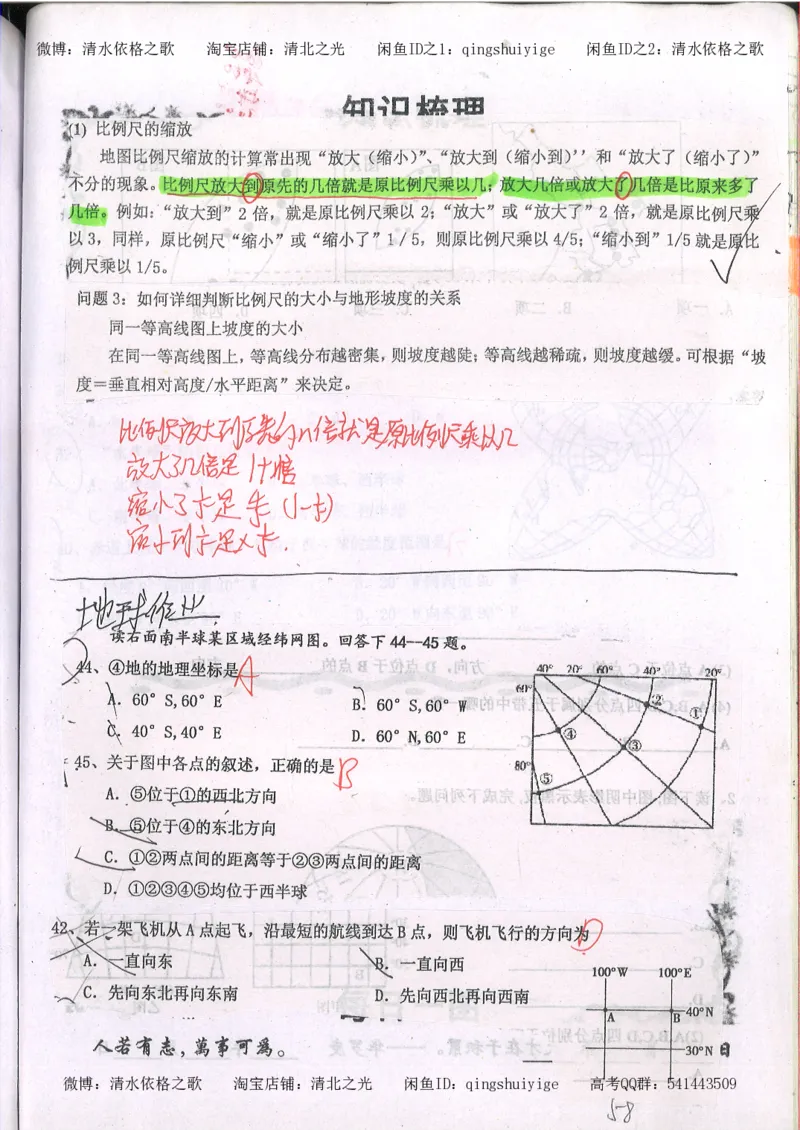 微博：清水依格之歌 淘宝店铺：清北之光 闲鱼ID之1：qingshuiyige 闲鱼ID之2：清水依格之歌
知识梳理
(1) 比例尺的缩放
地图比例尺缩放的计算常出现“放大（缩小）”、“放大到（缩小到）’’和“放大了（缩小了）”
不分的现象。比例尺放大到原先的几倍就是原比例尺乘以几；放大几倍或放大了几倍是比原来多了
几倍。例如：“放大到”2 倍，就是原比例尺乘以 2；“放大”或“放大了”2 倍，就是原比例尺乘
以 3，同样，原比例尺“缩小”或“缩小了”1 / 5，则原比例尺乘以 4/5；“缩小到”1/5 就是原比
例尺乘以 1/5。
问题 3：如何详细判断比例尺的大小与地形坡度的关系
同一等高线图上坡度的大小
在同一等高线图上，等高线分布越密集，则坡度越陡；等高线越稀疏，则坡度越缓。可根据“坡
度＝垂直相对高度/水平距离”来决定。
比例尺放大到原先的n倍就是原比例尺乘以几
放大了几倍是 1+n倍
地球
读右面南半球某区域经纬网图。回答下 44--45 题。
44、④地的地理坐标是 A
A．60° S,60° E B．60° S,60° W
C．40° S,40° E D．60° N,60° E
45、关于图中各点的叙述，正确的是 B
A．⑤位于①的西北方向
B．⑤位于④的东北方向
C．①②两点间的距离等于②③两点间的距离
D．①②③④⑤均位于西半球
40° 20° 60° 40° 20°
60°
② ①
④ ③
80°
⑤
42、若一架飞机从 A 点起飞，沿最短的航线到达 B 点，则飞机飞行的方向为 D
A．一直向东 B．一直向西
C．先向东北再向东南 D．先向西北再向西南
100°W 100°E
A B 40°N
30°N
人若有志，萬事可為。
日
微博：清水依格之歌 淘宝店铺：清北之光 闲鱼ID：qingshuiyige 高考QQ群：541443509
58